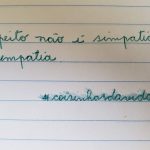 peito não é simpatia
empatia
#coisinhasdavida